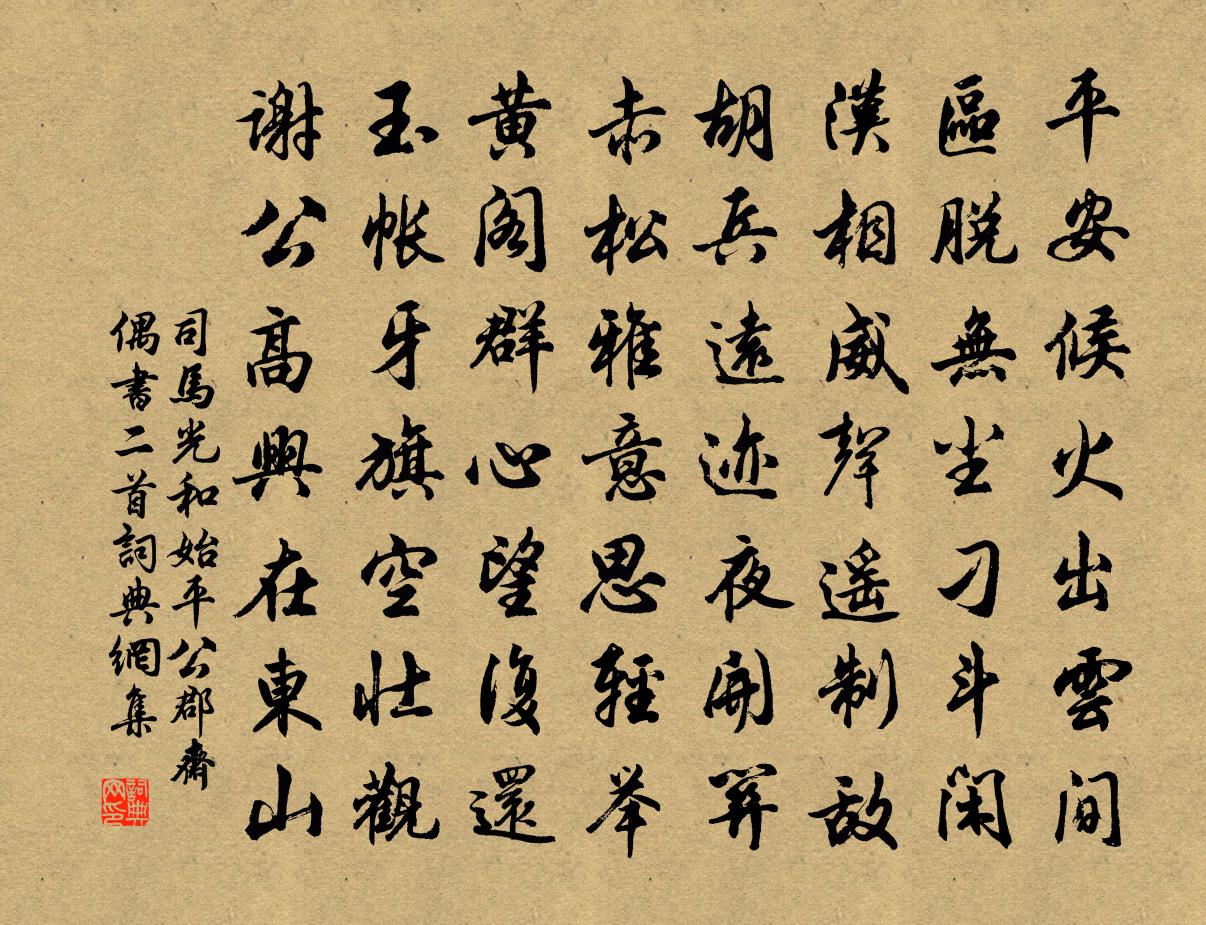 平安候火出雲間
區脱無尘刁斗闲
漢相威聲遥制敌
胡兵遠迹夜開関
赤松雅意思輕举
黄阁群心望復還
玉帐牙旗空壮觀
谢公高興在東山
司馬光和始平公郡齋
偶書二首詞典網集
詞典
网印